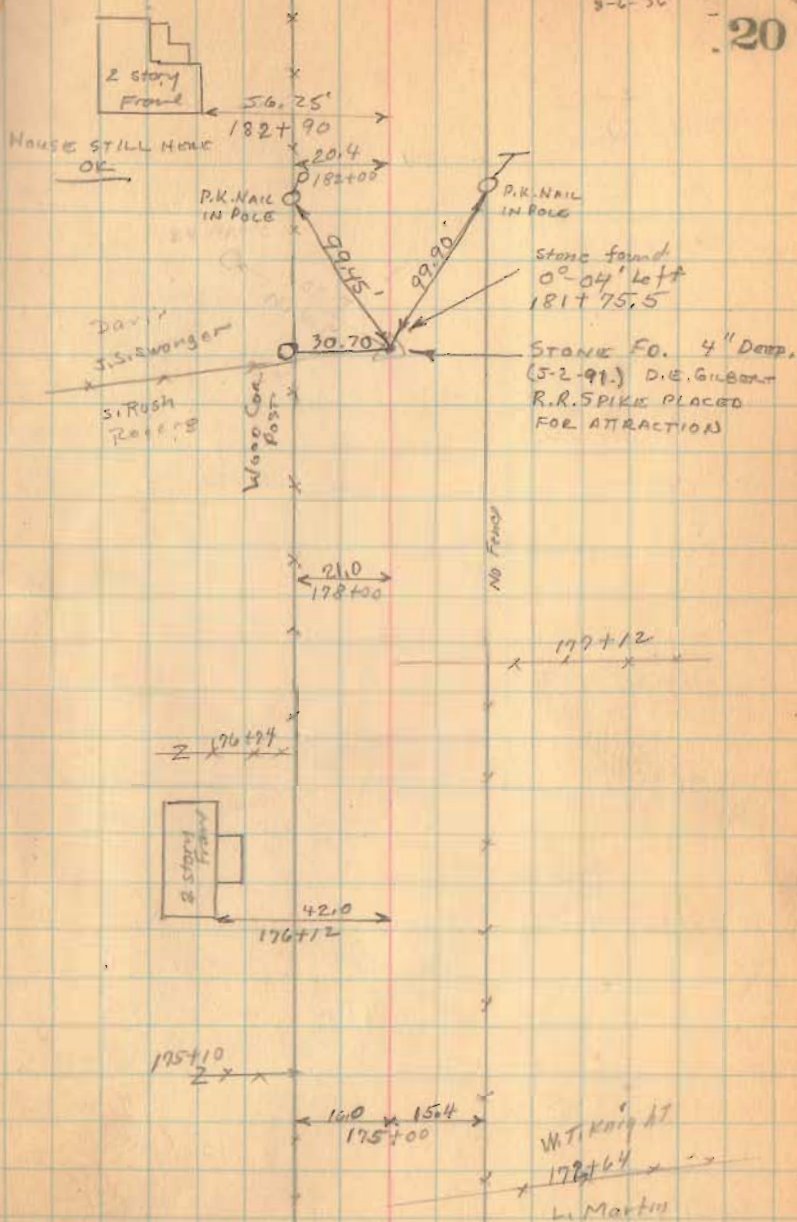 8-6-36
20
2 story
Frame
56.25'
182+90
HOUSE STILL HERE
OK
20.4
182+00
P.K. NAIL
IN POLE
P.K. NAIL
IN POLE
99.45'
99.90'
stone found
0°-04' Left
181+75.5
Davis
J.S. Swonger
S. Rush
Rogers
30.70
STONE FD. 4" DEEP.
(5-2-91.) D.E. GILBERT
R.R. SPIKE PLACED
FOR ATTRACTION
Wood Cor.
Post
No Fence
21.0
178+00
177+12
176+74
2 story
Frame
42.0
176+12
175+10
16.0
15.4
175+00
W.T. Knight
172+64
L. Martin